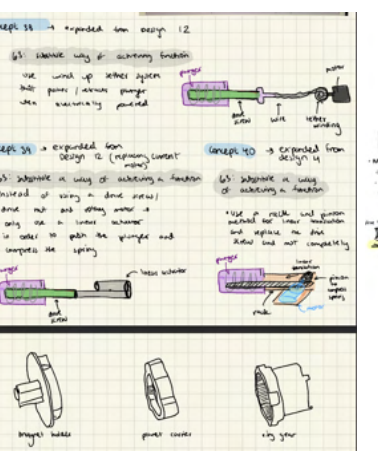 cept 38 → expanded from Design 12
63: substitute way of achieving function
use wind up tether system
that pushes / retracts plunger
when electrically powered
plunger
motor
drive screw
wire
tether winding
cept 39 → expanded from Design 12 (replacing current motor)
63: substitute a way of achieving a function
instead of using a drive screw/
drive nut and rotary motor →
only use a linear actuator
in order to push the plunger and
compress the spring
plunger
linear actuator
drive screw
Concept 40 → expanded from design 4
63: substitute a way
of achieving a function
• use a rack and pinion
method for linear translation
and replace the drive
screw and nut completely
plunger
linear translation
pinion to compress spring
rack
motor
magnet holder
power
ring gear